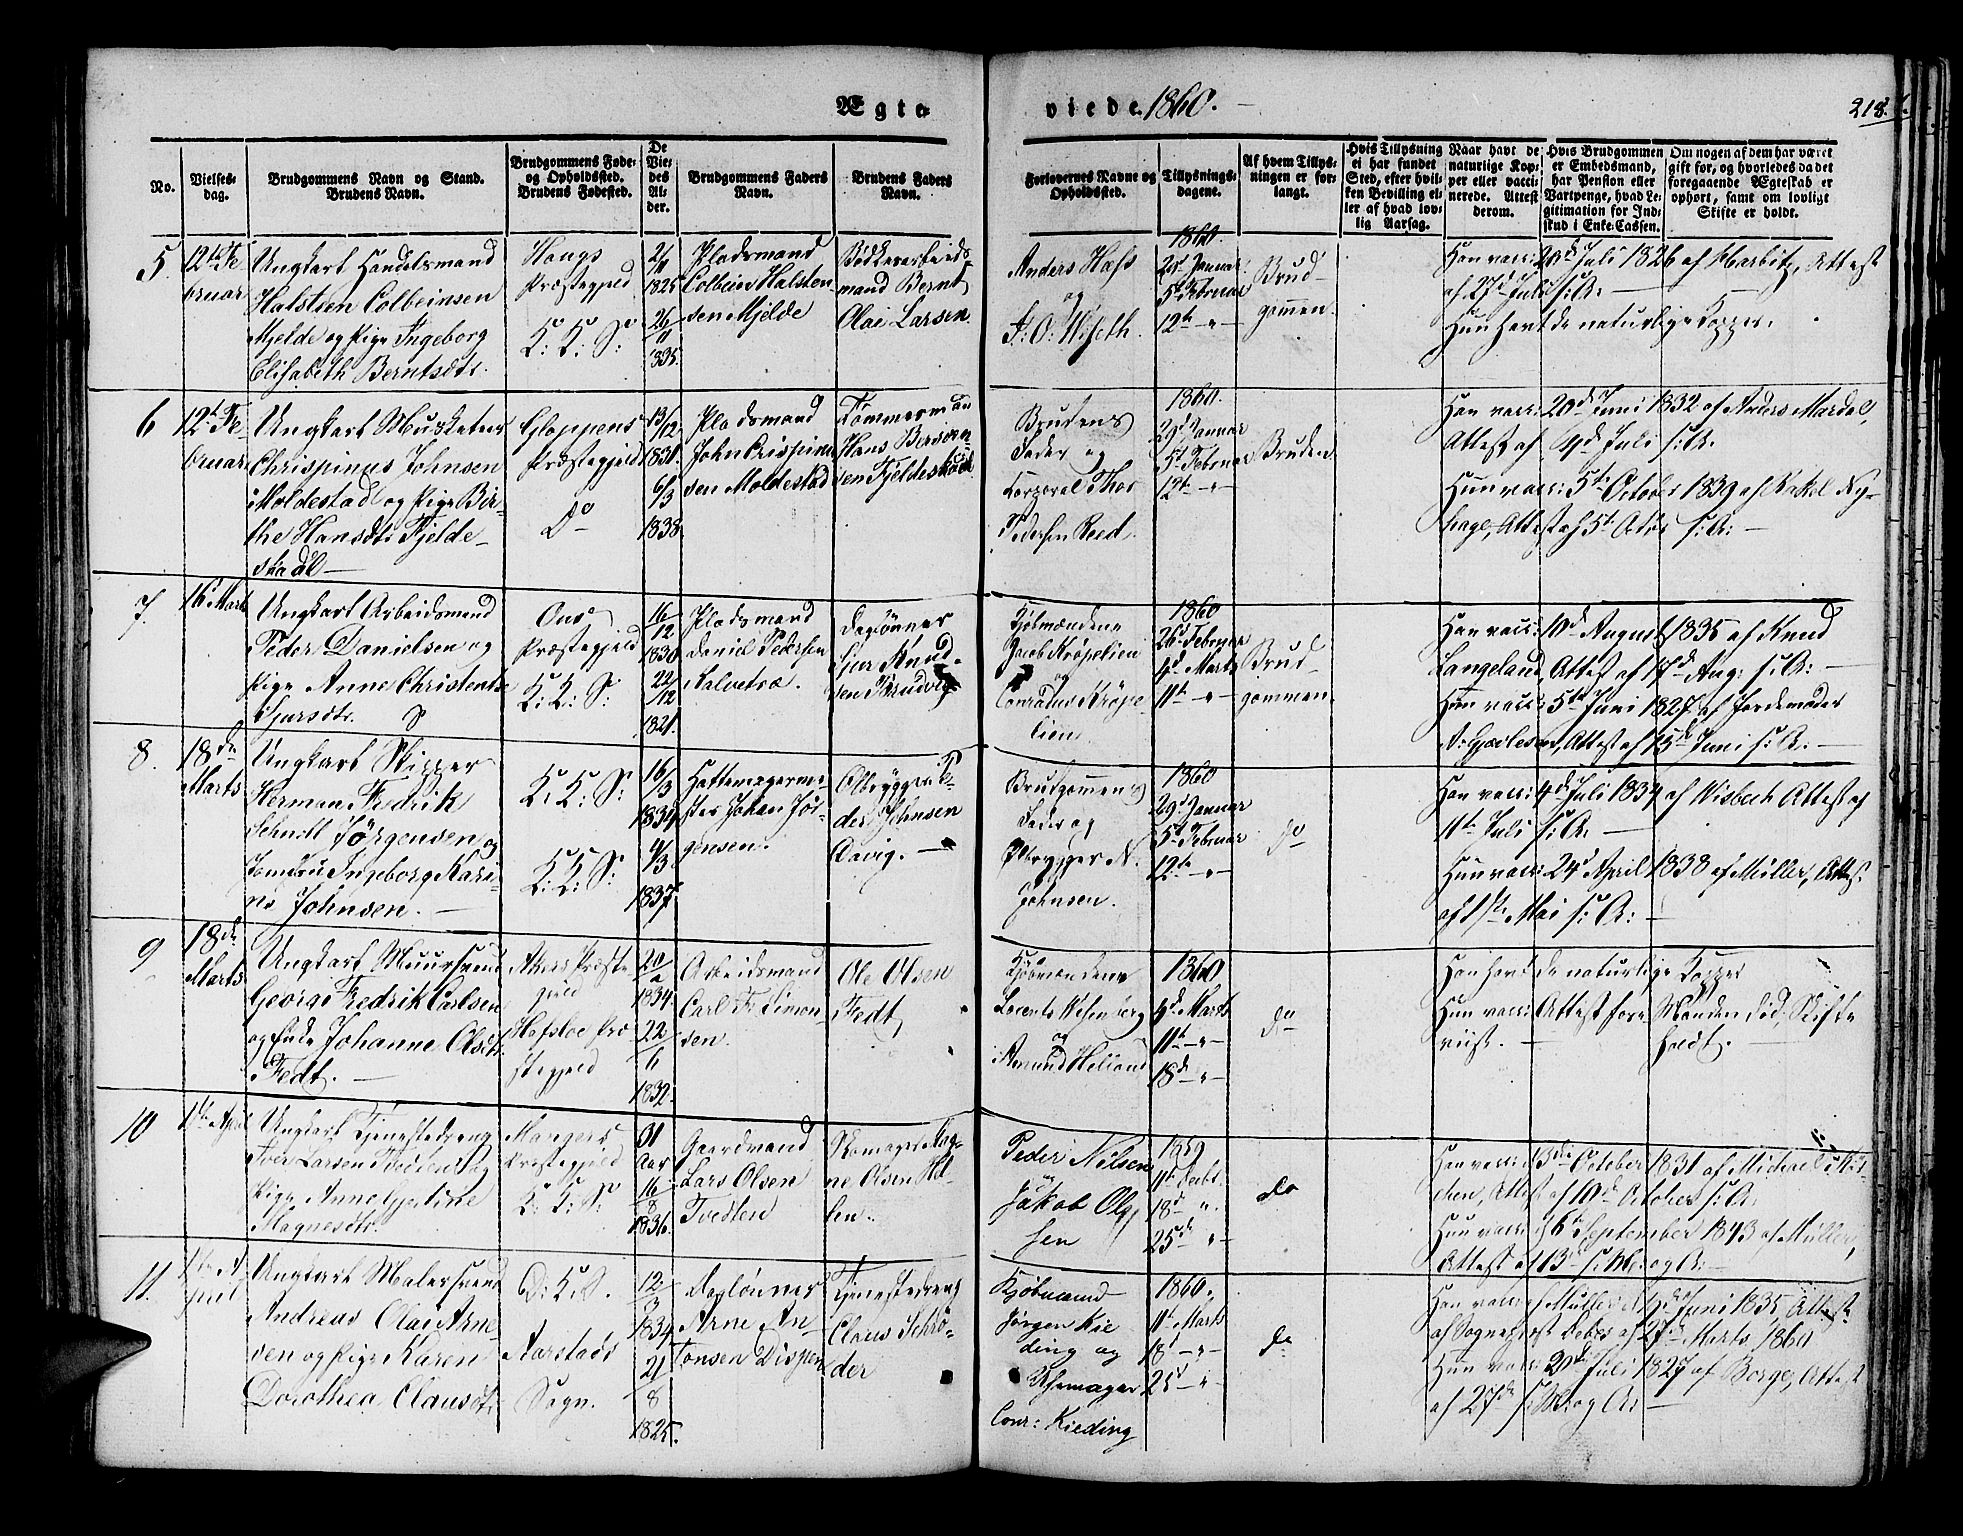 Ægte
viede 1860.
218.
No.
Vielses-
dag.
Brudgommens Navn og Stand.
Brudens Navn.
Brudgommens Føde-
og Opholdssted.
Brudens Fødested.
De
Vie-
des
Al-
der.
Brudgommens Faders
Navn.
Brudens Faders
Navn.
Forlovernes Navne og
Opholdssted.
Tillysnings-
dagene.
Af hvem Tillys-
ningen er for-
langt.
Hvis Tillysning
ei har fundet
Sted, efter hvil-
ken Bevilling el-
ler af hvad lov-
lig Aarsag.
Naar havt de
naturlige Kop-
per eller vacci-
nerede. Attest
derom.
Hvis Brudgommen
er Embedsmand,
har Pension eller
Vartpenge, hvad Le-
gitimation for Ind-
skud i Enke-Cassen.
Om nogen af dem har været
gift før, og hvorledes da det
foregaaende Ægteskab er
ophørt, samt om lovligt
Skifte er holdt.
5
12te Fe
bruar
Ungkarl Handelsmand
Halsteen Colbeinsen
Mjelde og Pige Ingeborg
Elisabeth Berntsdtr.
Haugs
Præstegjeld
K: K: S:
1825
26
11
1835.
Pladsmand
Colbein Halsten-
sen Mjelde
Bødkerarbeids-
mand Bernt
Olai Larsen
Anders Hass
og
J. O. Wiseth.
1860.
29d Januar
5t Februar
12te -"-
Brud-
gommen.
Han vacc: 20d Juli 1826 af Marbitz, Attest
af 27d Juli s: A: —
Hun havt de naturlige Kopper.
6
12te Fe-
bruar
Ungkarl Musketeer
Chrispinus Johnsen
Moldestad og Pige Bir-
the Hansdtr Fjelde-
staal —
Gloppens
Præstegjeld
Do
13/12
1831.
6/3
1838.
Pladsmand
John Crispinu
sen Moldestad
Tømmerman
Hans
sen Fjeldestad
Brudens
Fader og
Korporal Thor
Pedersen Reed.
1860.
29d Januar
5t Februar
12te -"-
Bruden
Han vacc: 20d Juni 1832 af Anders Mardal,
Attest af 4d Juli s: A.
Hun vacc: 5te October 1839 af Rakel Ny-
hage, Attest af 5t Octbr s: A: —
7.
16 Marts
Ungkarl Arbeidsmand
Peder Danielsen og
Pige Anne Christentse
Sjursdtr.
Ous
Præstegjeld
K: K: S:
16/12
1830
22/12
1821.
Pladsmand
Daniel Pedersen
Kalvetræ.
Dagløнner
Sjur Knud-
sen Brudvig
Kjøbmændene
Jacob Krøpelien
og
Conradus Krøpe-
lien
1860
26d Februar
4d Marts
11te -"-
Brud-
gommen.
Han vacc: 10d August 1835 af Knud
Langeland Attest af 17d Aug: s: A: —
Hun vacc: 5te Juni 1827 af Jordemoder
Attest af 15de Juni s: A: —
8.
18de
Marts
Ungkarl Skipper
Herman Fredrik
Jørgensen og
Jomfru Ingeborg Kari-
ne Johnsen. —
K: K: S:
K: K: S:
16/3
1834.
4/3
1837.
Hattemagerme-
ster Johan Jør-
gensen.
Ølbrygger Pe-
der Johnsen
Davig.
Brudgommens
Fader og
Ølbrygger N.
Johnsen.
1860
29d Januar
5t Februar
12te -"-
Do
Han vacc: 4d Juli 1834 af Wisbech Attest af
11te Juli s: A: —
Hun vacc: 24d April 1838 af Müller, Attest
af 1ste Mai s: A: —
9
18de
Marts
Ungkarl Muursvend
Georg Fredrik Carlsen
og Enke Johanne Olsdtr
Fedt. —
Akers Præste
gjeld
Hafsloe Præ
stegjeld
20
1834.
22
6
1832.
Arbeidsmand
Carl Fr. Simon-
sen.
Ole Olsen
Fedt
Kjøbmændene
og
Amund Helland
1860
4d Marts
11te -"-
18d -"-
Do
Han havt de naturlige Kopper
Hun vacc: Attest fore-
viist. —
Manden død, Skifte
holdt.
10
1ste April
Ungkarl Tjenestedreng
Iver Larsen Tvedten og
Pige Anne Gjertine
Magnesdtr.
Mangers
Præstegjeld
K: K: S:
31
Aar
16
8
1836.
Gaardmand
Lars Olsen
Tvedten
Skomager Mag-
ne Olsen Hol-
len.
Peder Nilsen
Jakob Ol
sen
1859
11te Decbr.
18d "
25de "-
do
Han vacc: 3die October 1831 af Michael
Attest af 10d October s: A:
Hun vacc: 6te September 1843 af Müller,
Attest af 13d s: M: og A: —
11.
1ste A-
pril
Ungkarl Malersvend
Andreas Olai Arne-
sen og Pige Karen
Dorothea Clausdtr.
D: K: S.
Aarstads
Sogn.
12
3
1834
21
8
1825.
Dagløнner
Arne An-
tonsen Dispen
Tjenestedreng
Claus Schrø-
der
Kjøbmand
Jørgen Kie
ding og
Uhrmager
Conr: Kieding
1860.
11te Marts
18d -"-
25d -"-
do
Han vacc: af Müller Juni 1835, Attest
af Sognepræst Debes af 27de Marts 1860
Hun vacc: 20de Juli 1827 af Borge, Attest
af 27de s: M: og A: —